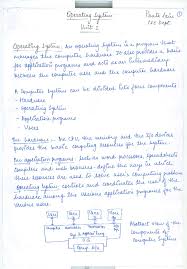 Operating System
Unit 1
CSE Dept.
Operating System: An operating system is a program that
manages the computer hardware. It also provides a basis
for application programs and acts as an intermediary
between the computer user and the computer hardware
A Computer System can be divided into four components
- Hardware
- Operating System
- Application Programs
- Users
The hardware - the CPU, the memory, and the I/O devices
provides the basic computing resources for the system.
The application programs such as word processors, spreadsheets
compilers and web browsers define the ways in which
these resources are used to solve user's computing problems
Operating System controls and coordinates the use of the
hardware among the various application programs for the
various users.
User 1
Abstract view of
the components
of Computer
System
O.S